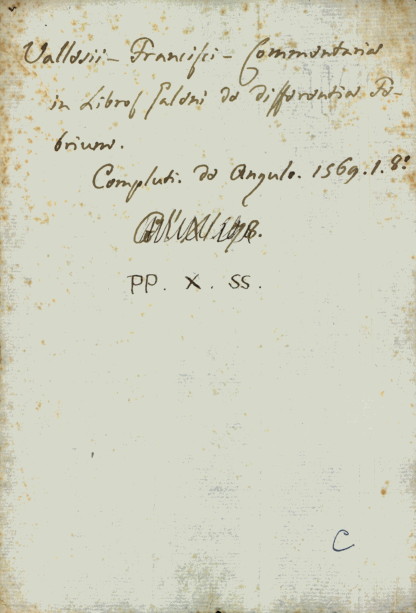 Vallesii - Francisci - Commentaria
in Libros Galeni de differentia Fe-
brium.
Compluti. de Angulo. 1569. 1. 8º
PP. X. SS.
C